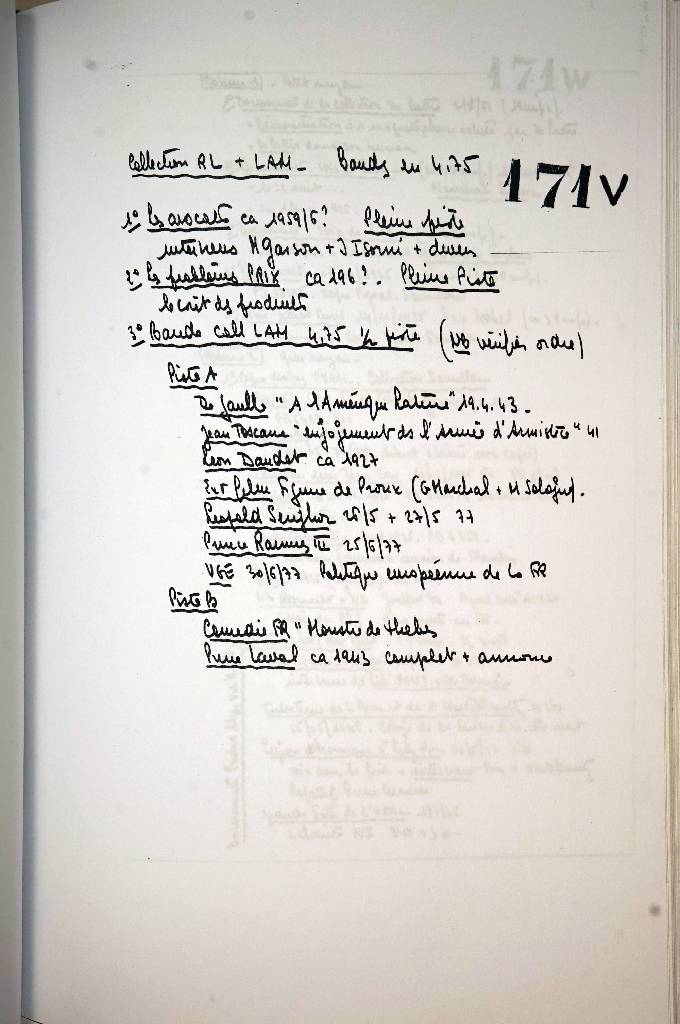 Collection RL + LAM - Bandes en 4,75
171 V
1º Les avocats ca 1959/6? Pleine piste
interviews M Garson + J Isorni + divers
2º Les problèmes PRIX ca 196?. Pleine Piste
le coût des produits
3º Bande coll LAM 4,75 1/2 piste (NB vérifier ordre)
Piste A
De Gaulle "A l'Amérique Latine" 19.4.43.
Jean "engagement ds l'Armée d'Armistice" 41
Léon Daudet ca 1927
Ext film Figure de Proue (G Marchal + M Sologne).
Léopold Senghor 26/5 + 27/5 77
Prince Rainier III 25/6/77
VGE 30/6/77 Politique européenne de la FR
Piste B
Comédie FR "Monstre de thebes
Pierre Laval ca 1943 complet + annonce